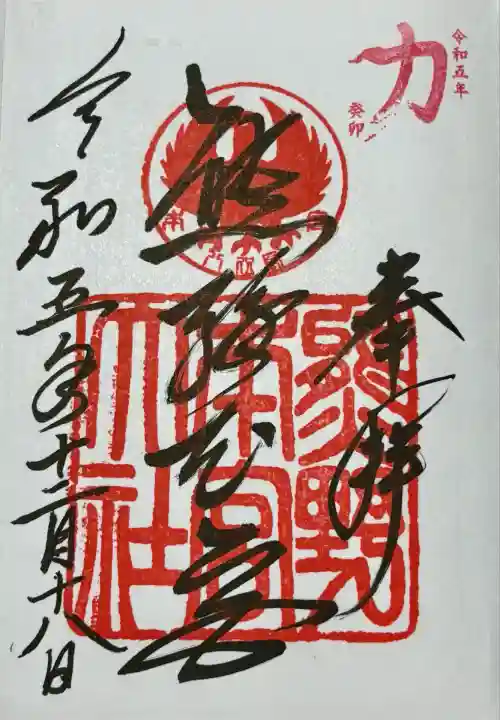 令和五年
力
癸卯
奉拝
熊野本宮
令和五年十二月十八日
熊野
本宮
大社